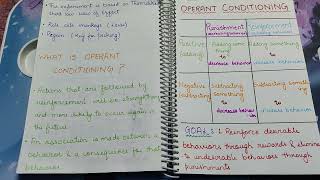 • The experiment is based on Thorndike's
their law of effect
• Rats
monkeys
Pigeon
WHAT IS OPERANT
CONDITIONING ?
• Actions that are followed by
reinforcement will be strengthened
and more likely to occur again in
the future.
• An association is made between a
behavior & a consequence for that
behavior.
OPERANT CONDITIONING
Punishment
decreasing behavior
Reinforcement
increasing behavior
Positive
(adding)
Adding something
to
decrease behavior
Adding
something
to
increase behavior
Negative
subtracting
Subtracting
something
to
decrease behavior
Subtracting something
to
increase behavior
GOAL : Reinforce desirable
behaviors through rewards & eliminate
undesirable behaviors through
punishments